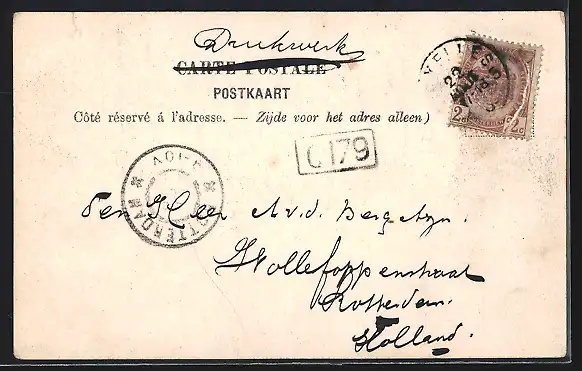 Drukwerk
CARTE POSTALE
POSTKAART
Côté réservé á l'adresse. — Zijde voor het adres alleen)
22
2c 2c
C 179
ROTTERDAM
Den Heer A.v.d. Berg Azn.
Hollefoppenstraat
Rotterdam.
Holland.